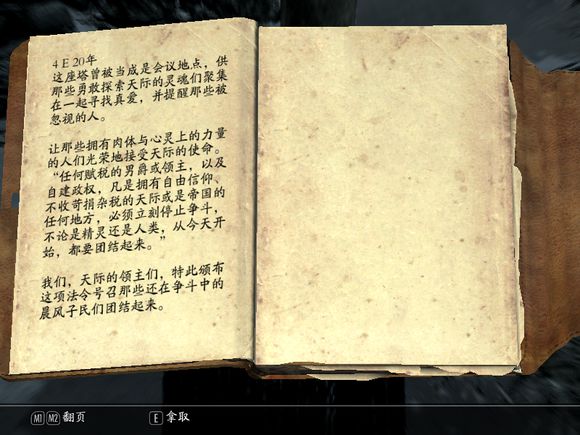 4 E 20年
这座塔曾被当成是会议地点，供
那些勇敢探索天际的灵魂们聚集
在一起寻找真爱，并提醒那些被
忽视的人。
让那些拥有肉体与心灵上的力量
的人们光荣地接受天际的使命。
“任何赋税的男爵或领主，以及
自建政权，凡是拥有自由信仰、
不收苛捐杂税的天际或是帝国的
任何地方，必须立刻停止争斗，
不论是精灵还是人类，从今天开
始，都要团结起来。”
我们，天际的领主们，特此颁布
这项法令号召那些还在争斗中的
晨风子民们团结起来。
M1 M2 翻页 E 拿取